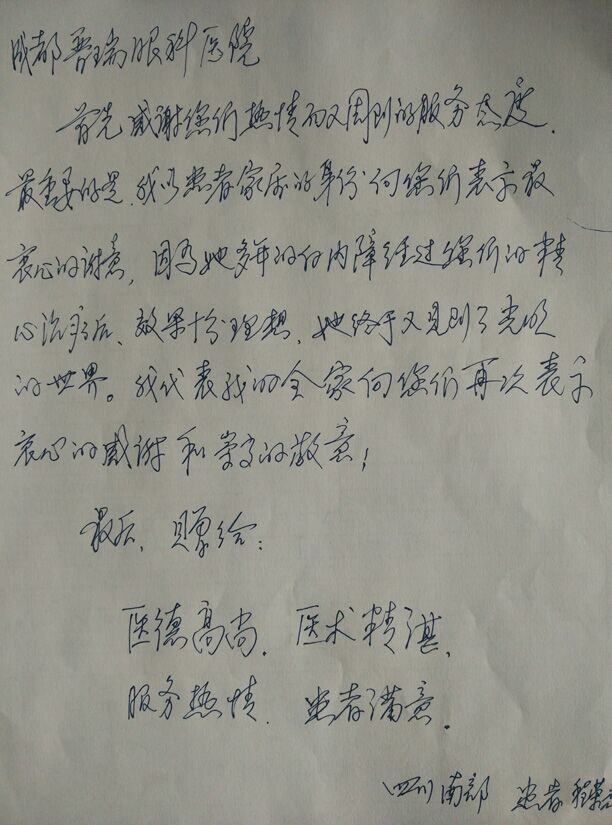 成都普瑞眼科医院
首先感谢您们热情而又周到的服务态度.
最重要的是.我以患者家属的身份向您们表示最
衷心的谢意,因为她多年的白内障经过您们的精
心治疗后、效果十分理想,她终于又见到了光明
的世界。我代表我的全家向您们再次表示
衷心的感谢和崇高的敬意!
最后,赠给:
医德高尚.医术精湛、
服务热情.患者满意.
四川南部 患者